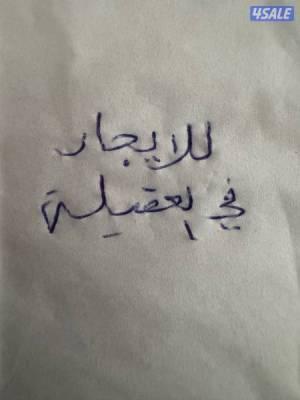 4SALE
للايجار
في العقيلة